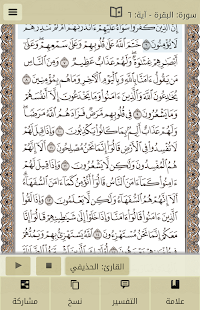 سورة: البقرة - آية: ٦
إِنَّ الَّذِينَ كَفَرُوا سَوَاءٌ عَلَيْهِمْ ءَأَنذَرْتَهُمْ أَمْ لَمْ تُنذِرْهُمْ
لَا يُؤْمِنُونَ ۝ خَتَمَ اللَّهُ عَلَىٰ قُلُوبِهِمْ وَعَلَىٰ سَمْعِهِمْ وَعَلَىٰ
أَبْصَارِهِمْ غِشَاوَةٌ وَلَهُمْ عَذَابٌ عَظِيمٌ ۝ وَمِنَ النَّاسِ
مَن يَقُولُ ءَامَنَّا بِاللَّهِ وَبِالْيَوْمِ الْآخِرِ وَمَا هُم بِمُؤْمِنِينَ ۝
يُخَادِعُونَ اللَّهَ وَالَّذِينَ ءَامَنُوا وَمَا يَخْدَعُونَ إِلَّا أَنفُسَهُمْ
وَمَا يَشْعُرُونَ ۝ فِي قُلُوبِهِم مَّرَضٌ فَزَادَهُمُ اللَّهُ مَرَضًا
وَلَهُمْ عَذَابٌ أَلِيمٌ بِمَا كَانُوا يَكْذِبُونَ ۝ وَإِذَا قِيلَ لَهُمْ
لَا تُفْسِدُوا فِي الْأَرْضِ قَالُوا إِنَّمَا نَحْنُ مُصْلِحُونَ ۝ أَلَا إِنَّهُمْ
هُمُ الْمُفْسِدُونَ وَلَٰكِن لَّا يَشْعُرُونَ ۝ وَإِذَا قِيلَ لَهُمْ
ءَامِنُوا كَمَا ءَامَنَ النَّاسُ قَالُوا أَنُؤْمِنُ كَمَا ءَامَنَ السُّفَهَاءُ
أَلَا إِنَّهُمْ هُمُ السُّفَهَاءُ وَلَٰكِن لَّا يَعْلَمُونَ ۝ وَإِذَا لَقُوا
الَّذِينَ ءَامَنُوا قَالُوا ءَامَنَّا وَإِذَا خَلَوْا إِلَىٰ شَيَاطِينِهِمْ قَالُوا إِنَّا
مَعَكُمْ إِنَّمَا نَحْنُ مُسْتَهْزِءُونَ ۝ اللَّهُ يَسْتَهْزِئُ بِهِمْ وَيَمُدُّهُمْ
القارئ: الحذيفي
علامة
التفسير
نسخ
مشاركة